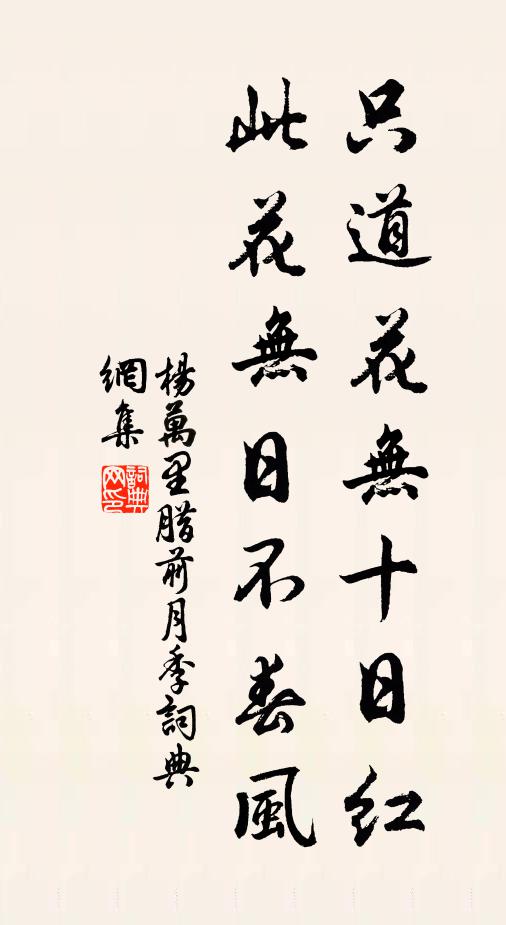 只道花無十日紅
此花無日不春風
楊萬里腊前月季詞典
網集
詞典
网印